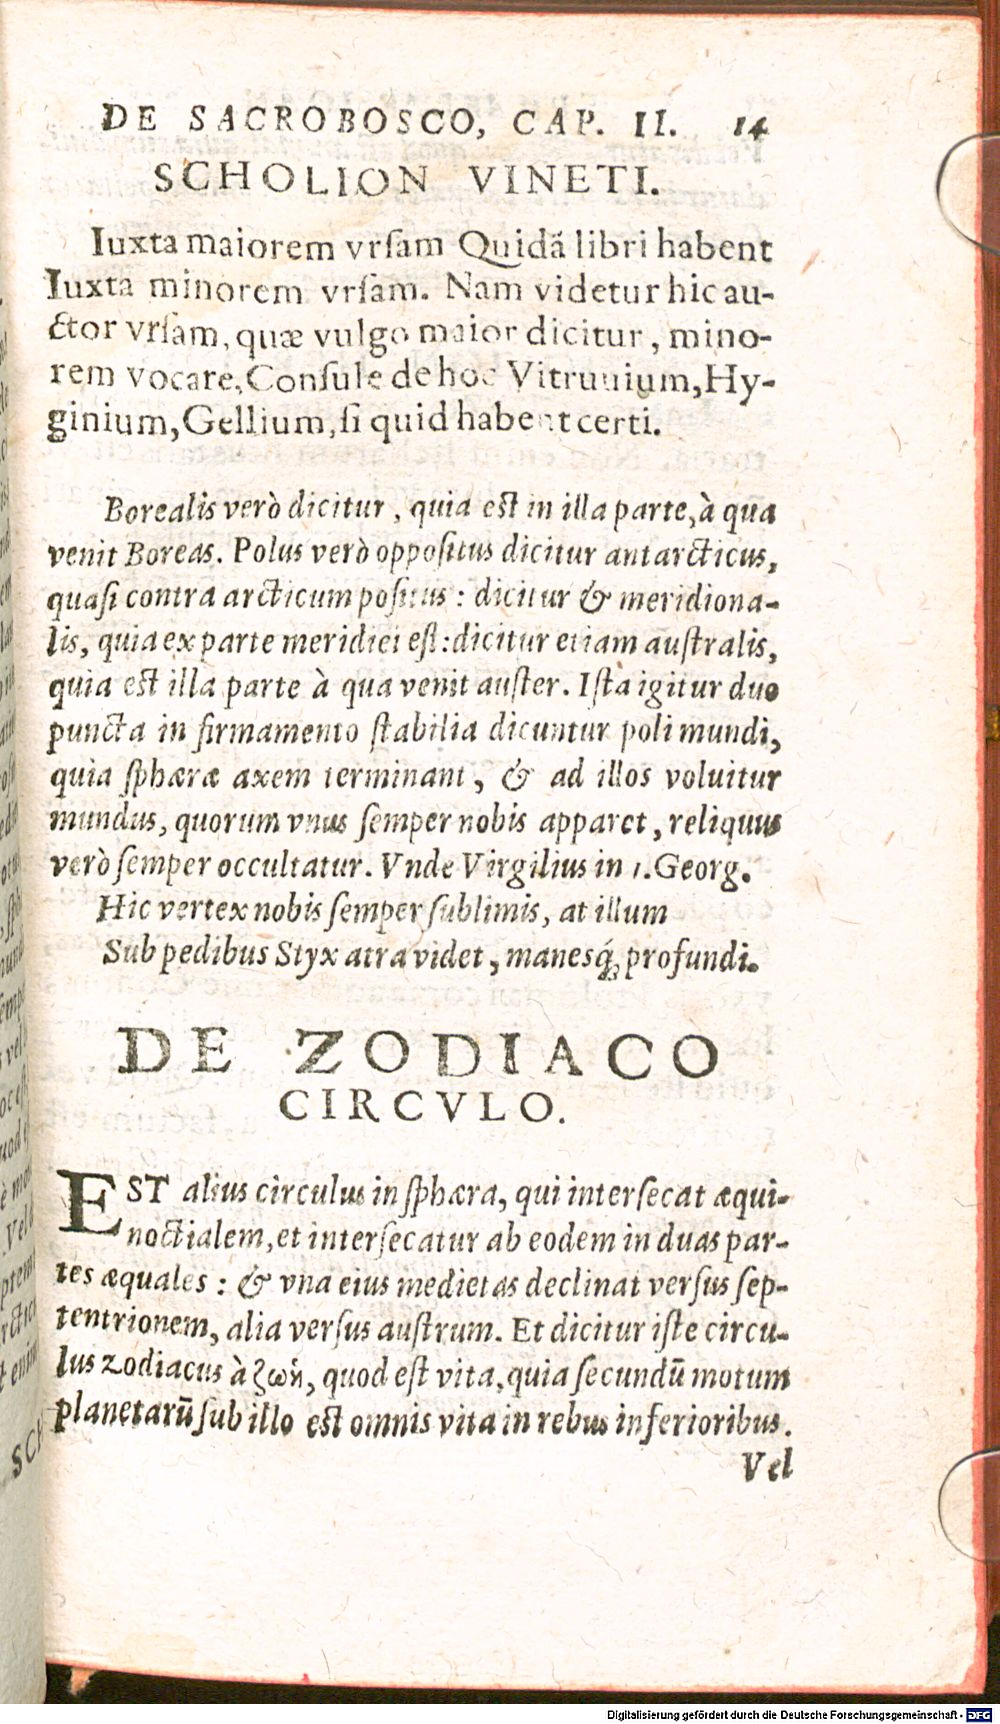 DE SACROBOSCO, CAP. II. 14
SCHOLION VINETI.
Iuxta maiorem vrſam Quidã libri habent
Iuxta minorem vrſam. Nam videtur hic au-
ctor vrſam, quæ vulgo maior dicitur, mino-
rem vocare, Conſule de hoc Vitruuium, Hy-
ginium, Gellium, ſi quid habent certi.
Borealis verò dicitur, quia eſt in illa parte, à qua
venit Boreas. Polus verò oppoſitus dicitur antarcticus,
quaſi contra arcticum poſitus: dicitur & meridiona-
lis, quia ex parte meridiei eſt: dicitur etiam auſtralis,
quia eſt illa parte à qua venit auſter. Iſta igitur duo
puncta in firmamento ſtabilia dicuntur poli mundi,
quia ſphæræ axem terminant, & ad illos voluitur
mundus, quorum vnus ſemper nobis apparet, reliquus
verò ſemper occultatur. Vnde Virgilius in 1. Georg.
Hic vertex nobis ſemper ſublimis, at illum
Sub pedibus Styx atra videt, manesq́; profundi.
DE ZODIACO
CIRCVLO.
EST alius circulus in ſphæra, qui interſecat æqui-
noctialem, et interſecatur ab eodem in duas par-
tes æquales: & vna eius medietas declinat verſus ſep-
tentrionem, alia verſus auſtrum. Et dicitur iſte circu-
lus zodiacus à ζωή, quod eſt vita, quia ſecundū motum
planetarū ſub illo eſt omnis vita in rebus inferioribus.
Vel
Digitalisierung gefördert durch die Deutsche Forschungsgemeinschaft - DFG